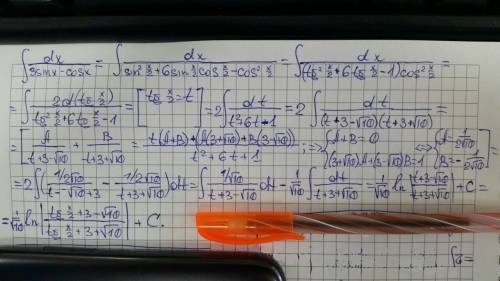 ∫ dx/(3sinx-cosx) = ∫ dx/(sin² x/2 + 6 sin x/2 cos x/2 - cos² x/2) = ∫ dx/((tg² x/2 + 6 tg x/2 - 1) cos² x/2) =
= ∫ 2d(tg x/2)/(tg² x/2 + 6 tg x/2 - 1) = [tg x/2 = t] = 2∫ dt/(t²+6t+1) = 2∫ dt/((t+3-√10)(t+3+√10)) =
= [A/(t+3-√10) + B/(t+3+√10) = (t(A+B)+A(3+√10)+B(3-√10))/(t²+6t+1) ; ⇒ {A+B=0 (3+√10)A+(3-√10)B=1 ⇔ {A=1/(2√10) B=-1/(2√10)] =
= 2∫(1/2√10/(t-√10+3) - 1/2√10/(t+3+√10))dt = ∫ 1/√10/(t+3-√10) dt - 1/√10 ∫ dt/(t+3+√10) = 1/√10 ln|(t+3-√10)/(t+3+√10)| + C =
= 1/√10 ln|(tg x/2 + 3 - √10)/(tg x/2 + 3 + √10)| + C.